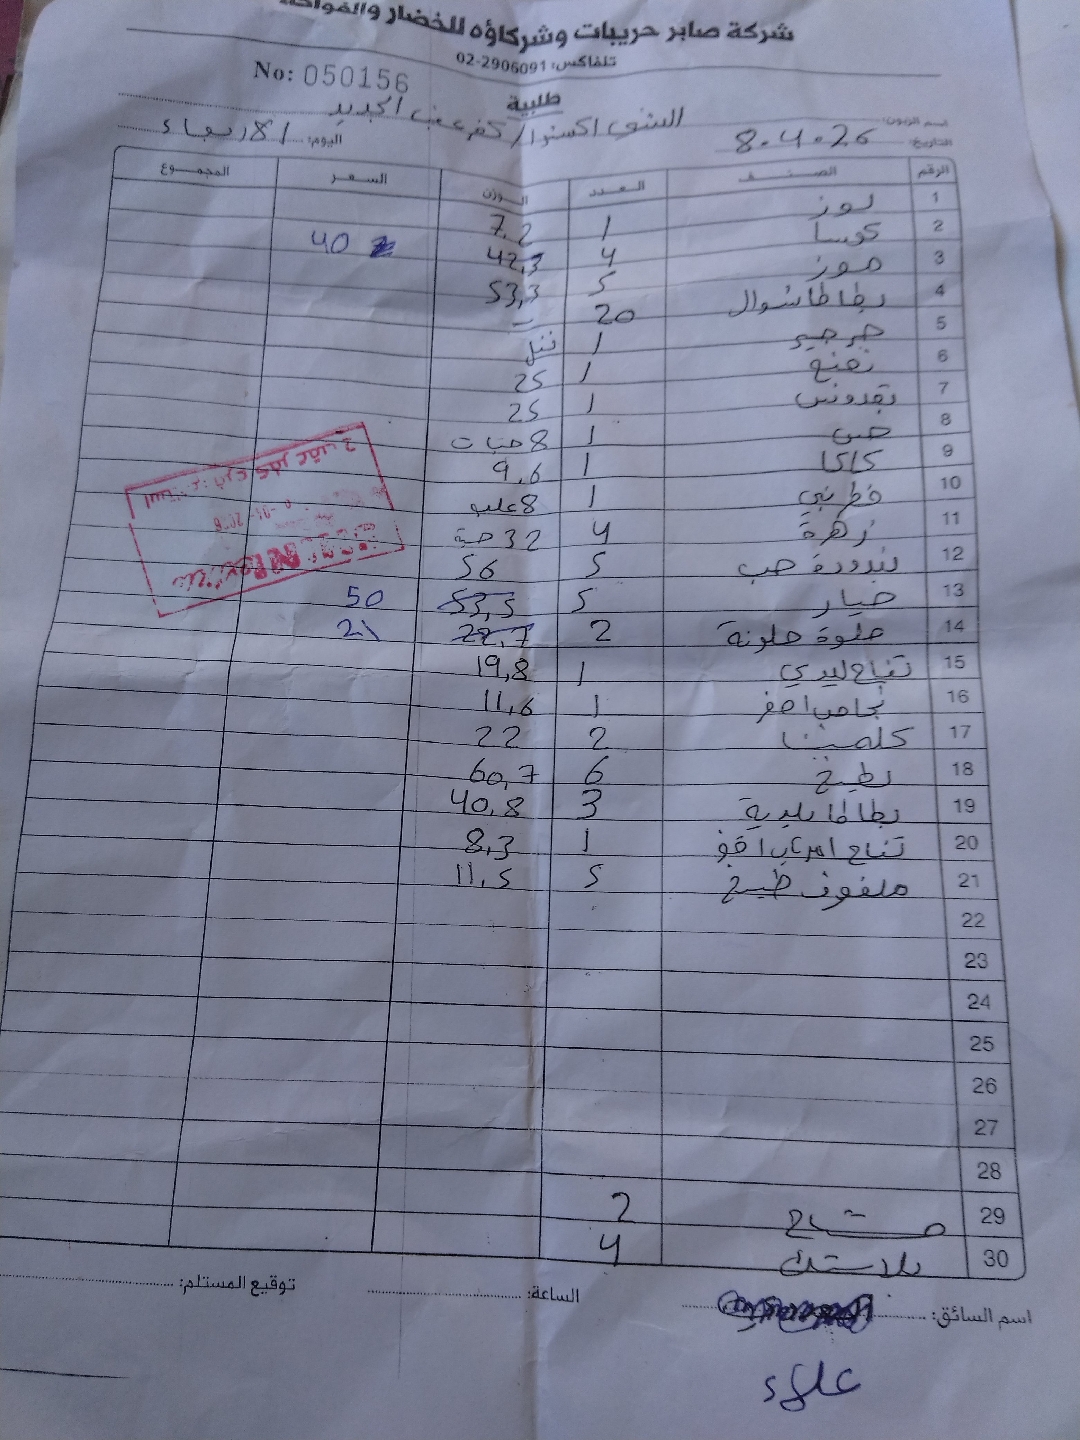 شركة صابر حريبات وشركاؤه للخضار والفواكه
تلفاكس: 02-2906091
No: 050156
طلبية
اسم الزبون: السنوي اكسترا / كفر عقب الجديد
التاريخ: 8.4.26 اليوم: الاربعاء
الرقم الصنف العدد الوزن السعر المجموع
1 لوز 1 7,2
2 كوسا 4 42,3 40
3 موز 5 53,3
4 بطاطا شوال 20 -
5 جرجير 1
6 نعنع 1 25
7 بقدونس 1 25
8 خس 1 8 حبات
9 كاكا 1 9,6
10 فطر بني 1 8 علب
11 زهرة 4 32 حبة
12 بندورة حب 5 56
13 خيار 5 53,5 50
14 حلوة ملونة 2 22,7 21
15 تفاح ليدي 1 19,8
16 اجاص اصفر 1 11,6
17 كلمنتينا 2 22
18 بطيخ 6 60,7
19 بطاطا بلدية 3 40,8
20 تفاح 1 8,3
21 ملفوف طبيخ 5 11,5
22
23
24
25
26
27
28
29 مشتاح 2
30 بلاستك 4
اسم السائق: الساعة: توقيع المستلم:
علاء